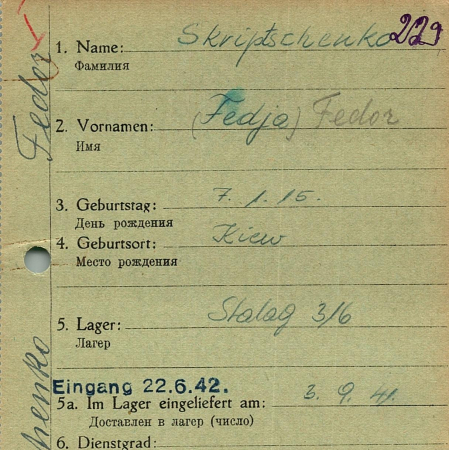 229
1. Name: Skriptschenko
Фамилия
Fedor
2. Vornamen: (Fedja) Fedor
Имя
3. Geburtstag: 7. 1. 15.
День рождения
4. Geburtsort: Kiew
Место рождения
5. Lager: Stalag 316
Лагер
Eingang 22.6.42.
5a. Im Lager eingeliefert am: 3. 9. 41.
Доставлен в лагер (число)
6. Dienstgrad: